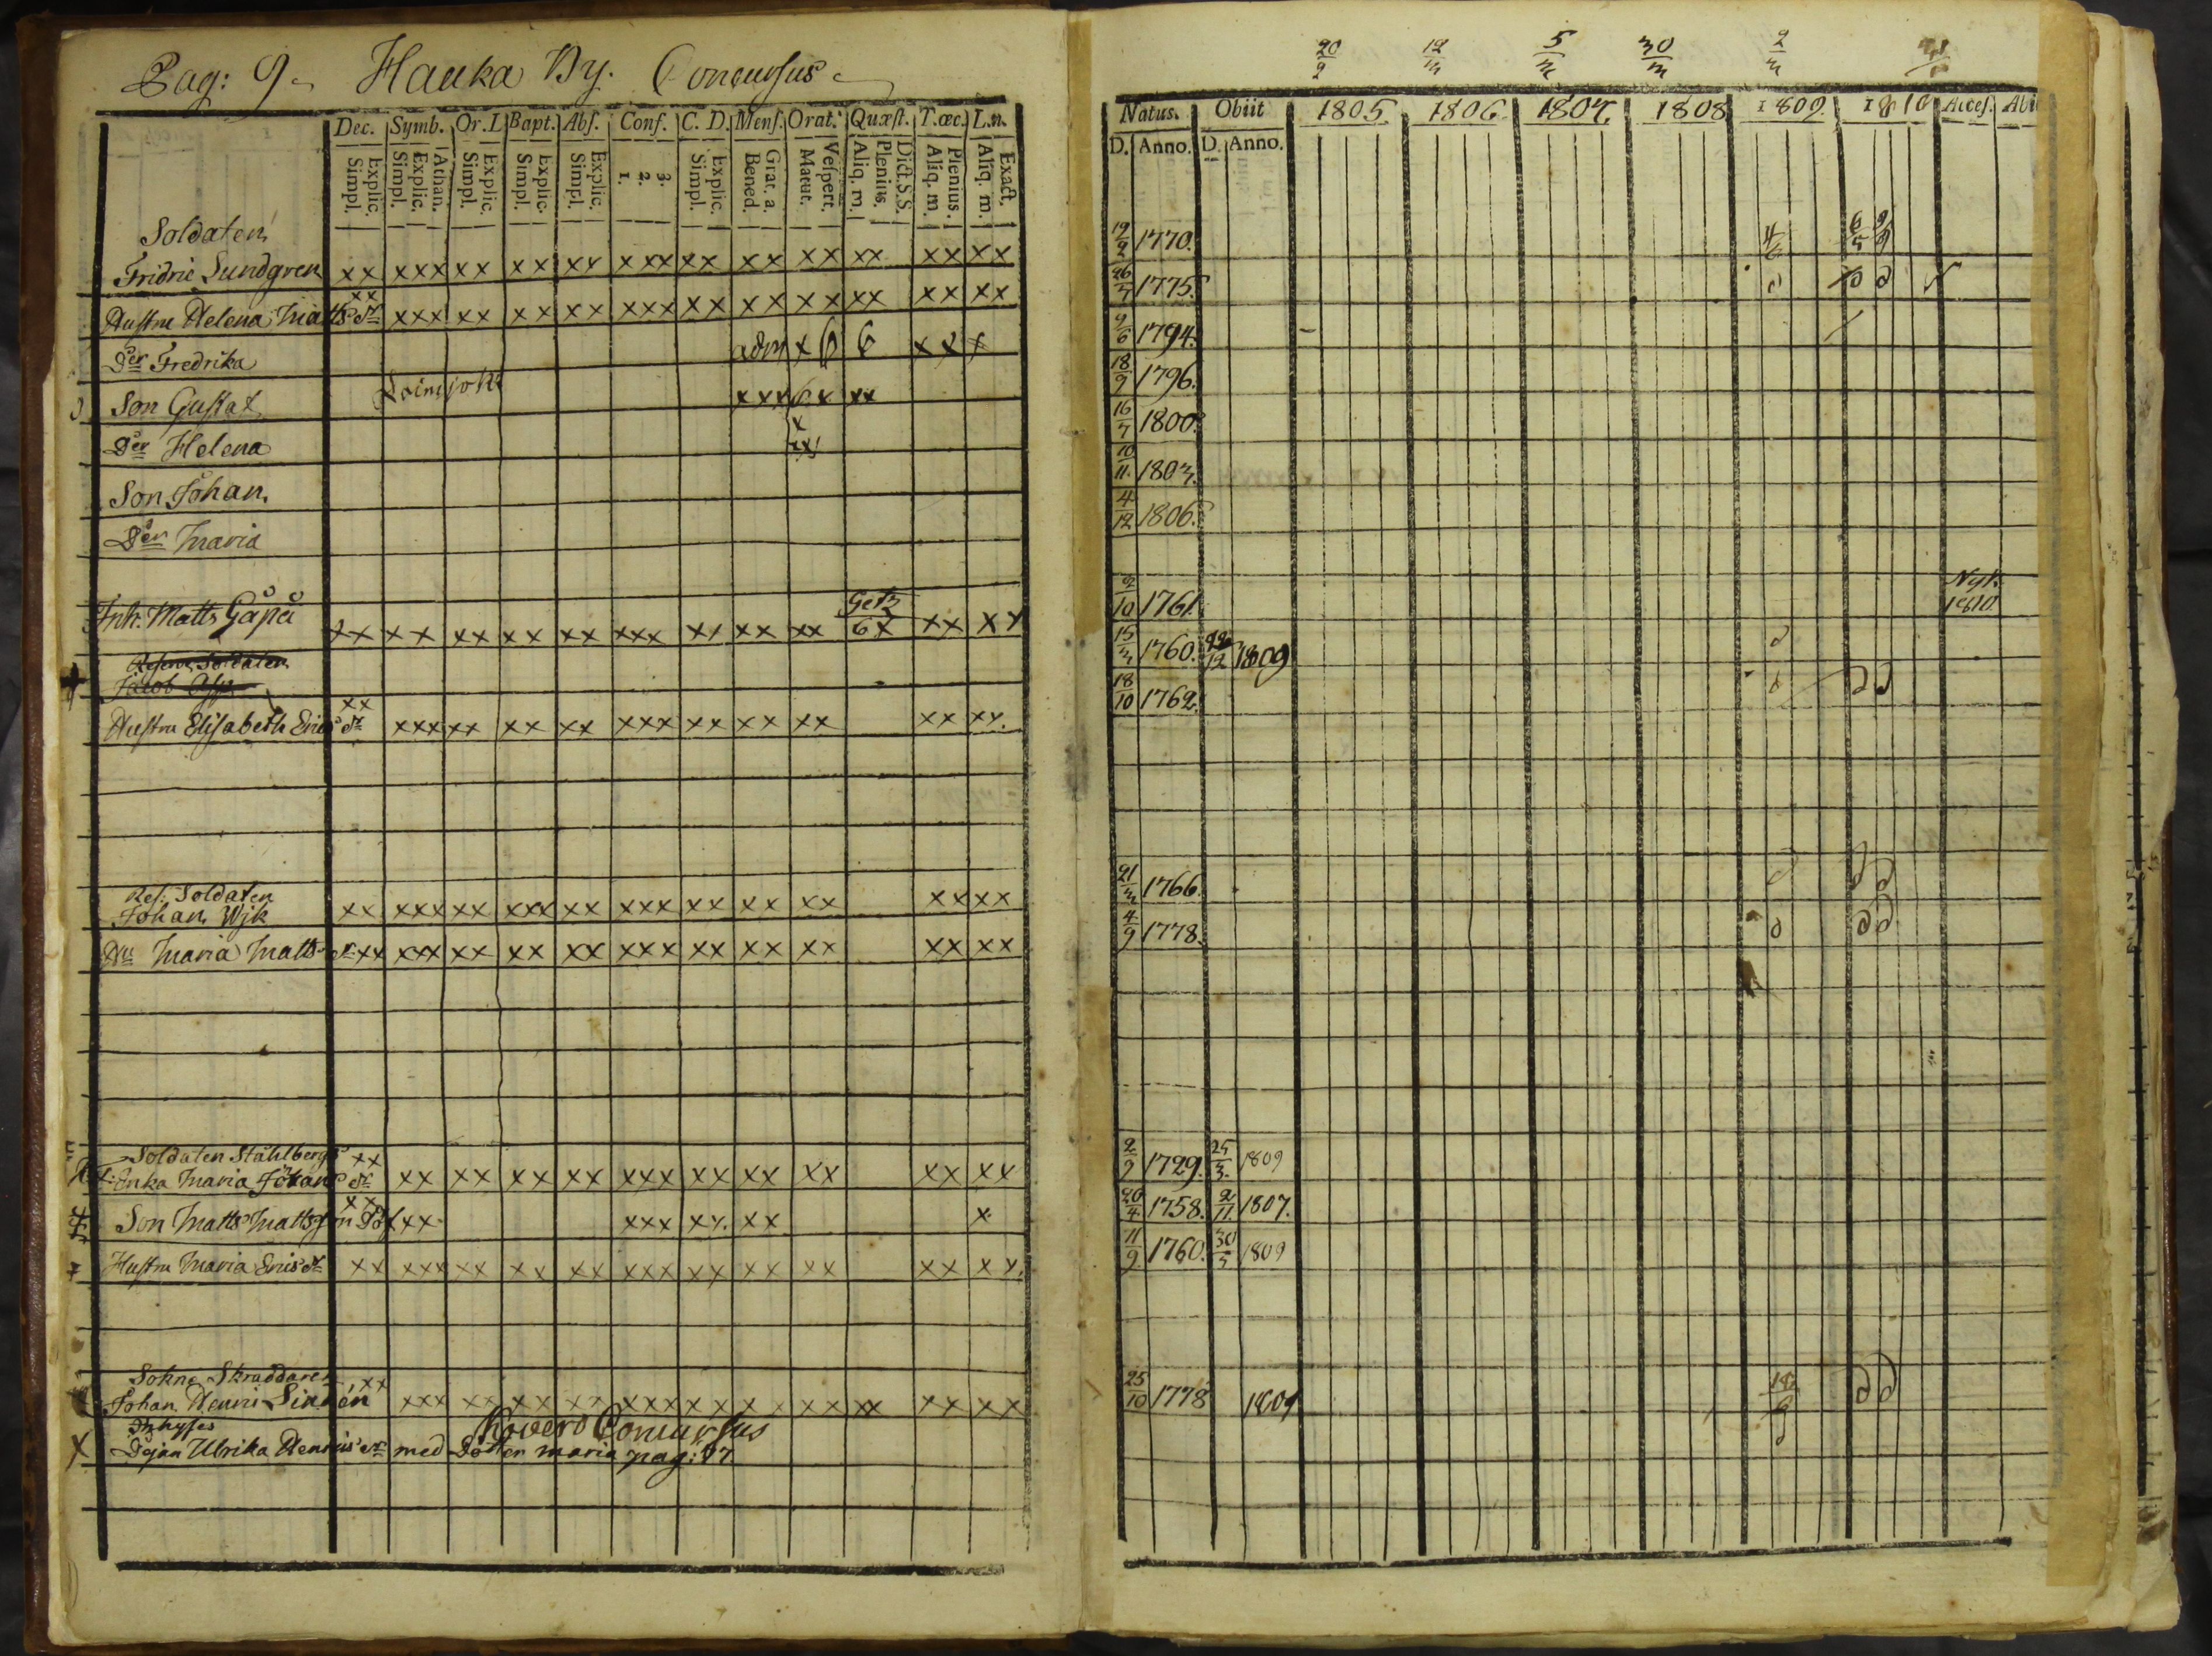 Pag: 9 Hauka By. Concursus
Dec. Symb. Or. D. Bapt. Abs. Conf. C. D. Mens. Orat. Quæst. T. œc. L. n.
Explic. Simpl. Athan. Explic. Simpl. Explic. Simpl. Explic. Simpl. Explic. Simpl. 3. 2. 1. Explic. Simpl. Grat. a. Bened. Vespert. Matut. Dict. S.S. Plenius. Aliq. m. Plenius. Aliq. m. Exact. Aliq. m.
Soldaten
Fridric Sundgren xx xxx xx xx xx xxx xx xx xx xx xx xx
Hustru Helena Matts dr xx xxx xx xx xx xxx xx xx xx xx xx xx
Der Fredrika
Son Gustaf
Der Helena
Son Johan.
Der Maria
Inh. Matts Gåpå xx xx xx xx xx xxx xx xx xx 6x xx xx
Reserve Soldaten
Jacob
Hustru Elisabeth Erics dr xx xxx xx xx xx xxx xx xx xx xx xx.
Res: Soldaten
Johan Wjk xx xxx xx xxx xx xxx xx xx xx xx xx
Hu Maria Matts dr xx xxx xx xx xx xxx xx xx xx xx xx
Soldaten Ståhlbergs
Enka Maria Johans dr xx xx xx xx xx xxx xx xx xx xx xx
Son Matts Mattsson xx xx xxx xx. xx x
Hustru Maria Erics dr xx xxx xx xx xx xxx xx xx xx xx xx.
Sokne Skräddaren
Johan Henric Lindén xx xxx xx xx xx xxx xx xx xx xx xx xx
Inhyses Kovero Concursus
x Pigan Ulrika Henrics dr med Dotter maria pag: 17
20/9 12/m 5/m 30/m 2/m
Natus. Obiit 1805. 1806. 1807. 1808 1809. 1810 Acces. Abi
D. Anno. D. Anno.
12/2 1770.
26/7 1775.
9/6 1794.
18/9 1796.
16/7 1800.
10/11. 1803.
4/12 1806.
2/10 1761. Nyk. 1810
15/3 1760. 22/12 1809
18/10 1762.
21/3 1766.
4/9 1778.
2/9 1729. 25/3. 1809
20/4 1758. 2/11. 1807.
11/9 1760. 30/5 1809
25/10 1778 1809